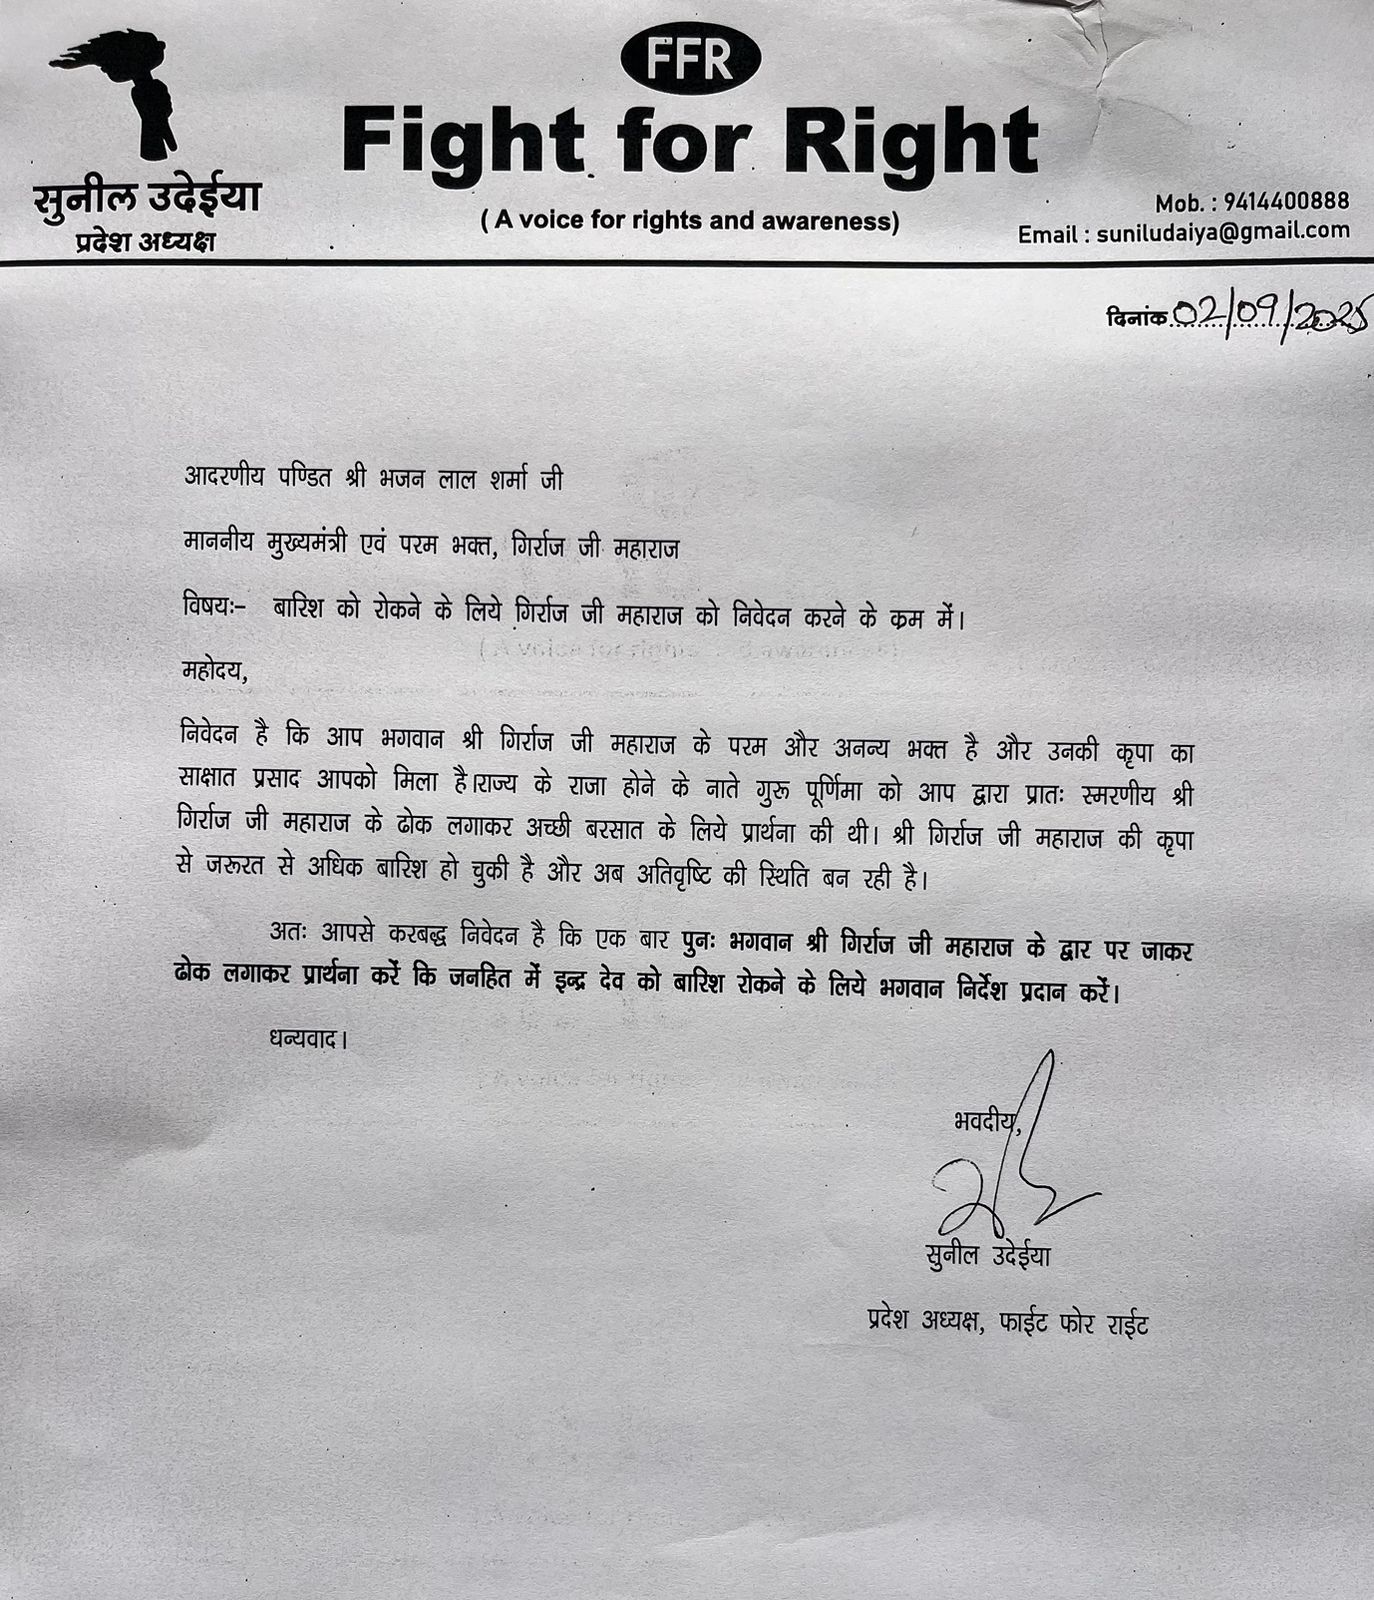 FFR
Fight for Right
( A voice for rights and awareness)
सुनील उदेईया
प्रदेश अध्यक्ष
Mob. : 9414400888
Email : suniludaiya@gmail.com
दिनांक 02/09/2025
आदरणीय पण्डित श्री भजन लाल शर्मा जी
माननीय मुख्यमंत्री एवं परम भक्त, गिर्राज जी महाराज
विषयः- बारिश को रोकने के लिये गिर्राज जी महाराज को निवेदन करने के क्रम में।
महोदय,
निवेदन है कि आप भगवान श्री गिर्राज जी महाराज के परम और अनन्य भक्त है और उनकी कृपा का
साक्षात प्रसाद आपको मिला है।राज्य के राजा होने के नाते गुरू पूर्णिमा को आप द्वारा प्रातः स्मरणीय श्री
गिर्राज जी महाराज के ढोक लगाकर अच्छी बरसात के लिये प्रार्थना की थी। श्री गिर्राज जी महाराज की कृपा
से जरूरत से अधिक बारिश हो चुकी है और अब अतिवृष्टि की स्थिति बन रही है।
अतः आपसे करबद्ध निवेदन है कि एक बार पुनः भगवान श्री गिर्राज जी महाराज के द्वार पर जाकर
ढोक लगाकर प्रार्थना करें कि जनहित में इन्द्र देव को बारिश रोकने के लिये भगवान निर्देश प्रदान करें।
धन्यवाद।
भवदीय,
सुनील उदेईया
प्रदेश अध्यक्ष, फाईट फोर राईट